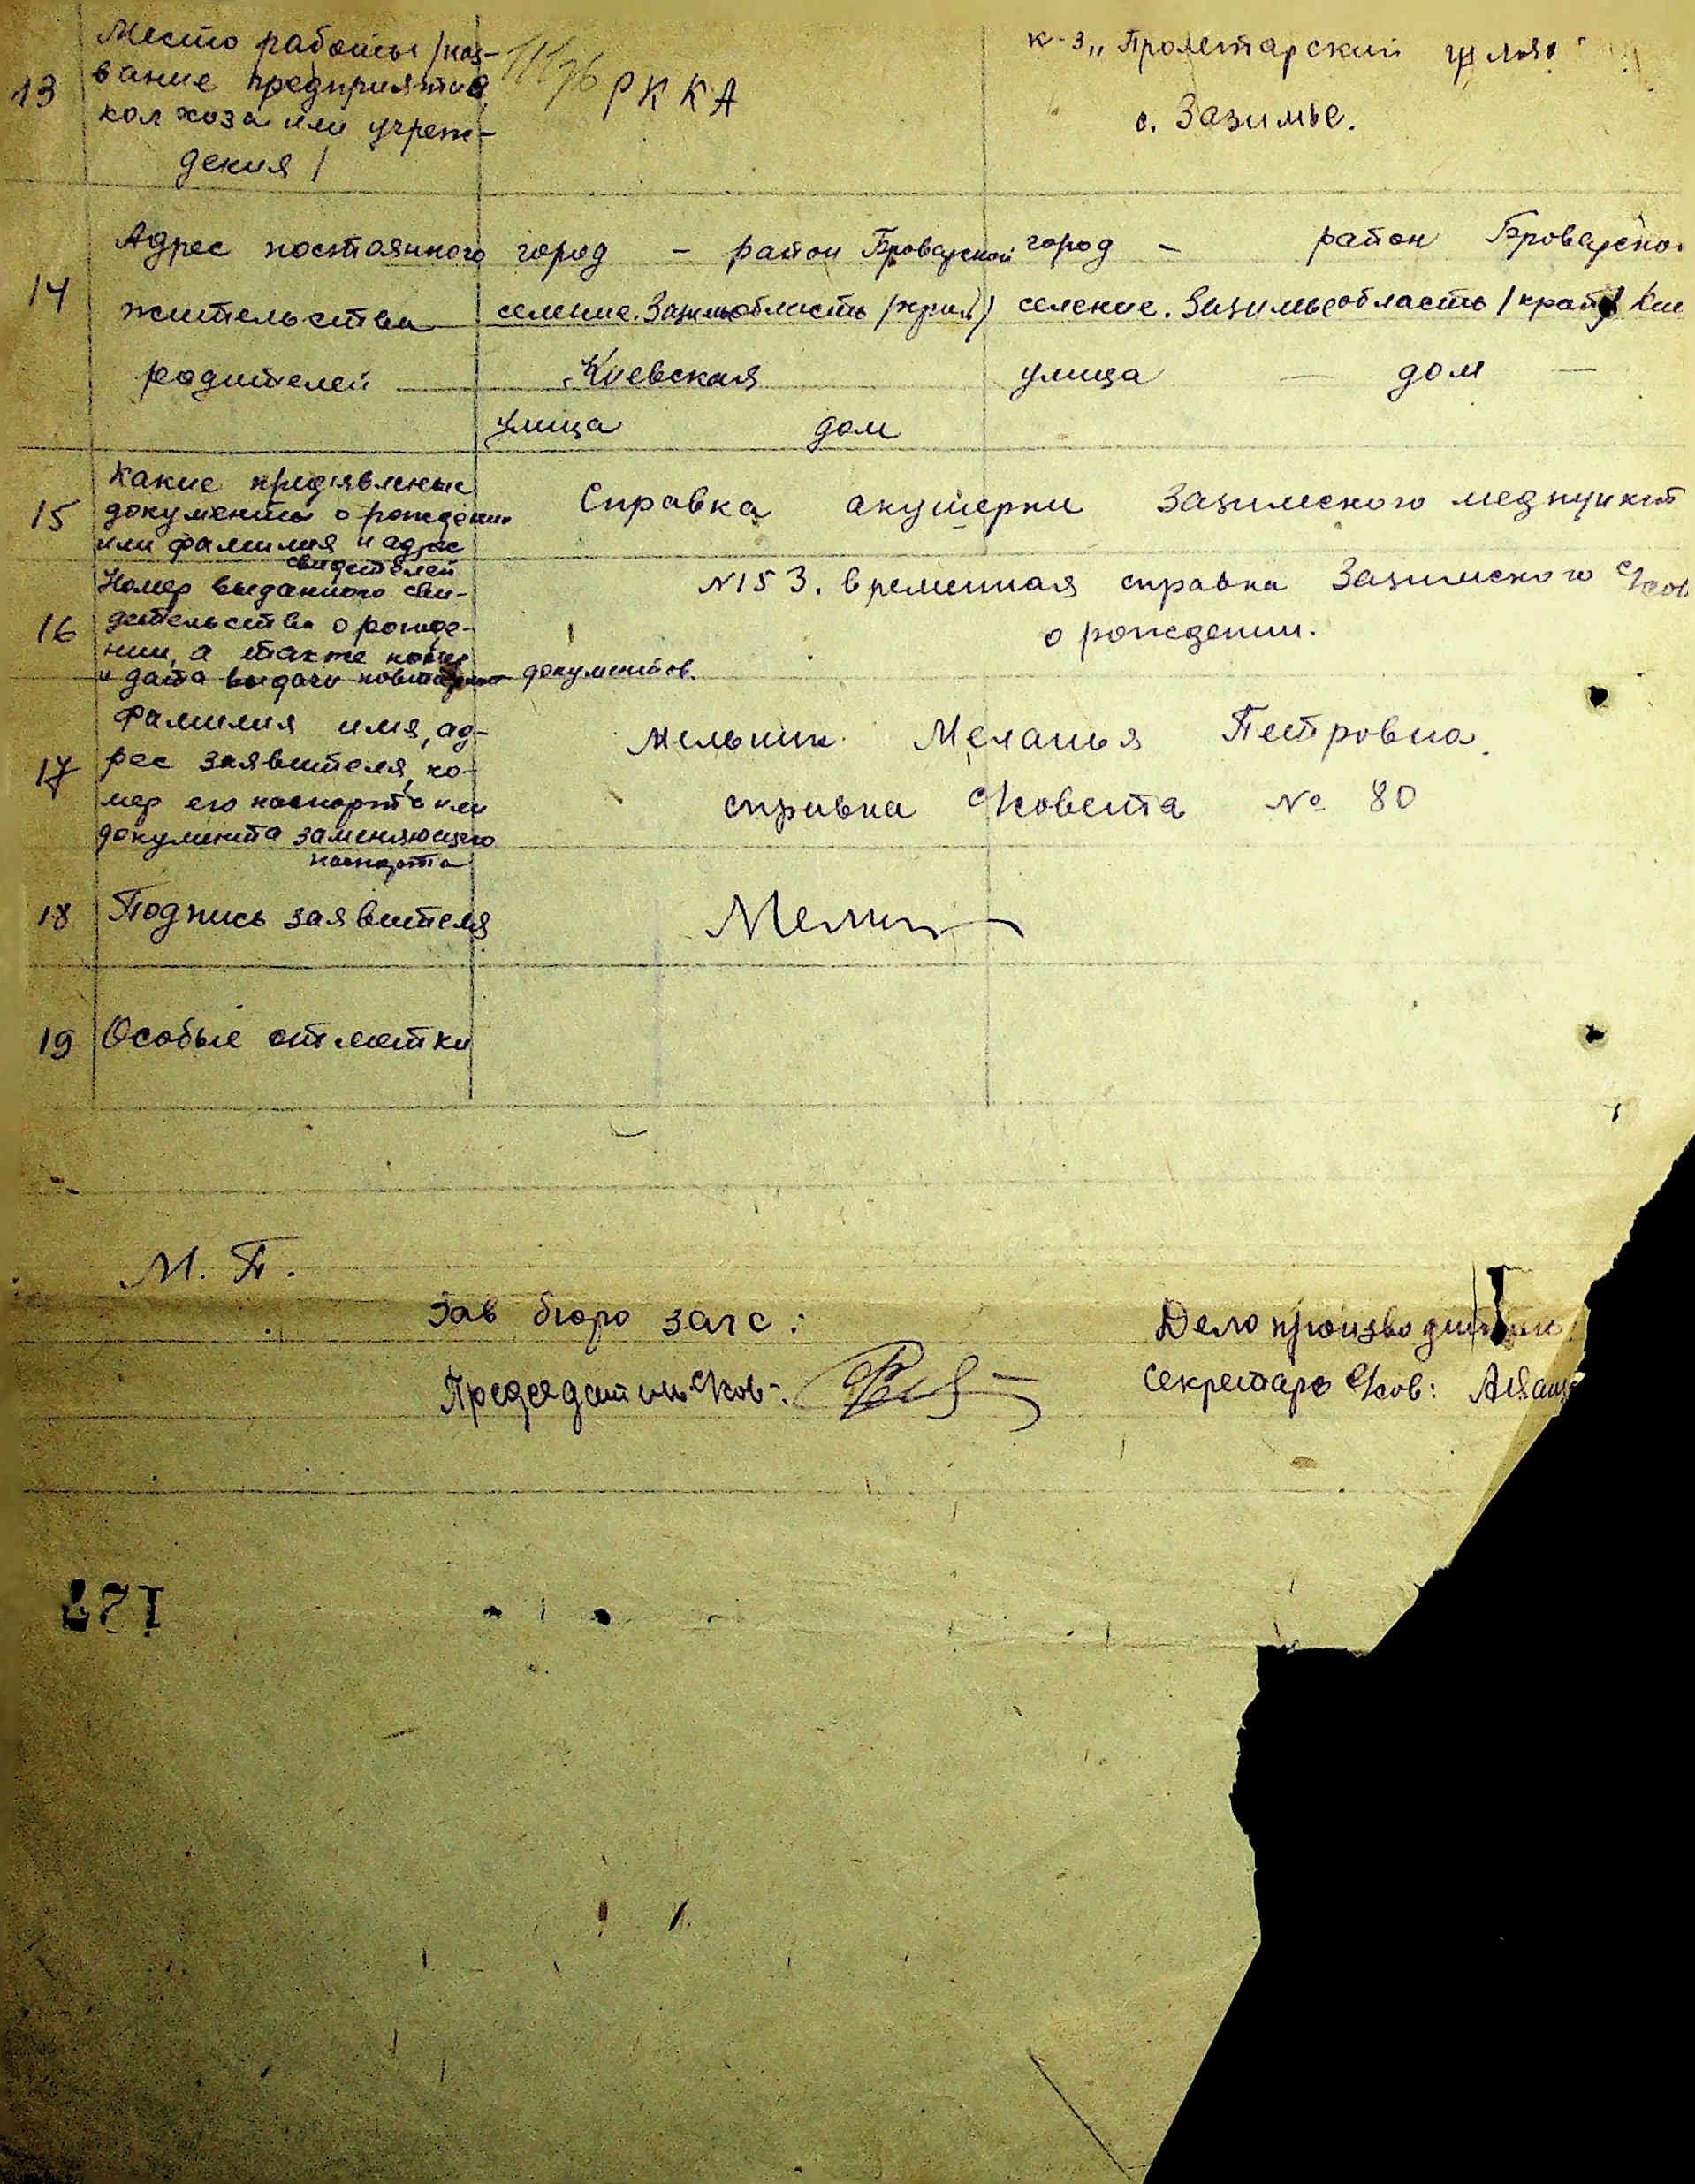 13
Место работы /наз-
вание предприятия
колхоза или учреж-
дения/
РККА
к-з „Пролетарский
с. Зазимье.
14
Адрес постоянного
жительства
родителей
город – район Броварской
селение. Зазимье область /край/
Киевская
улица дом
город – район Броварско
селение. Зазимье область /край/ Кие
улица — дом —
15
Какие предявленые
документы о рождении
или фамилия и адрес
свидетелей
Справка акушерки Зазимского медпункт
16
Номер выданного сви-
детельства о рожде-
нии, а также номер
и дата выдачи документов.
N153. временная справка Зазимского с/сов
о рождении.
17
Фамилия имя, ад-
рес заявителя, но-
мер его паспорта или
документа заменяющего
паспорта
Мельник Меланья Петровна.
справка с/совета № 80
18
Подпись заявителя
19
Особые отметки
М. П.
Зав бюро загс:
Председатель с/сов-:
Делопроизводитель
Секретарь с/сов:
127